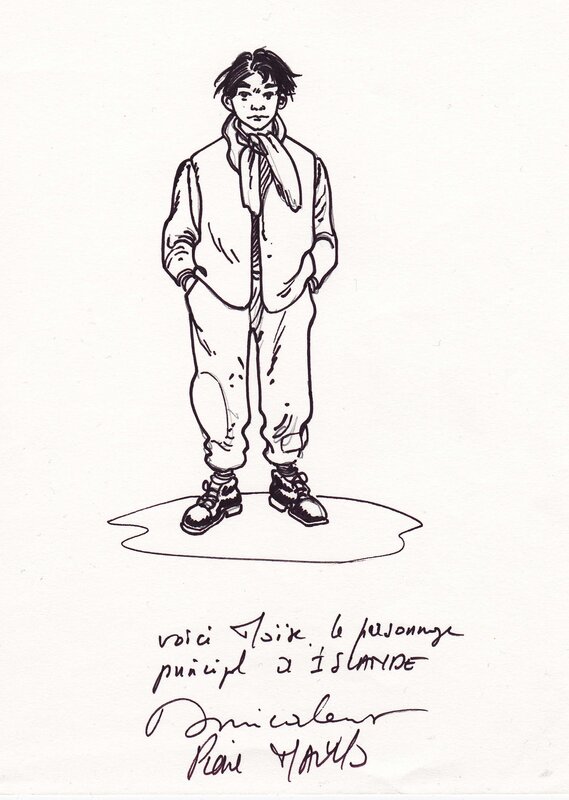 voici Moïse, le personnage
principal d'ISLANDE
Amicalement
Pierre